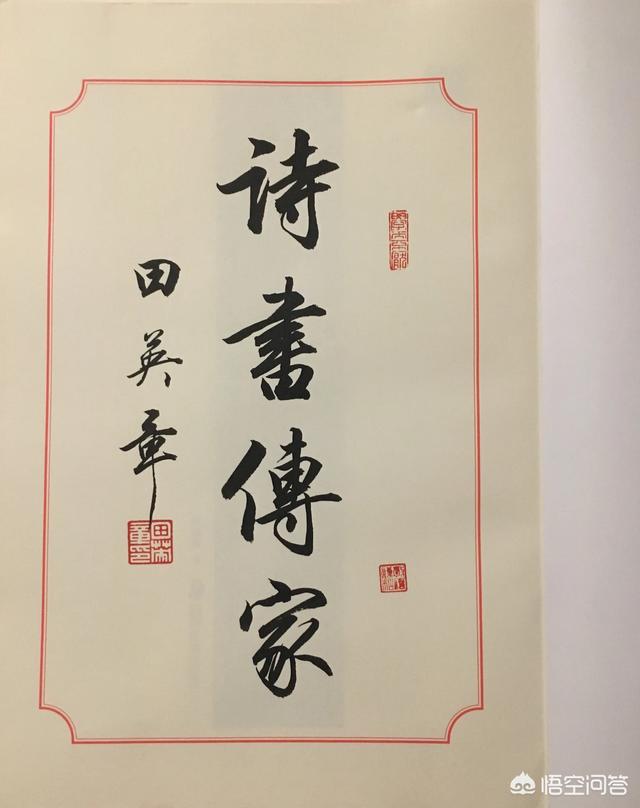 詩書傳家
田英章
田英章印
悟空问答